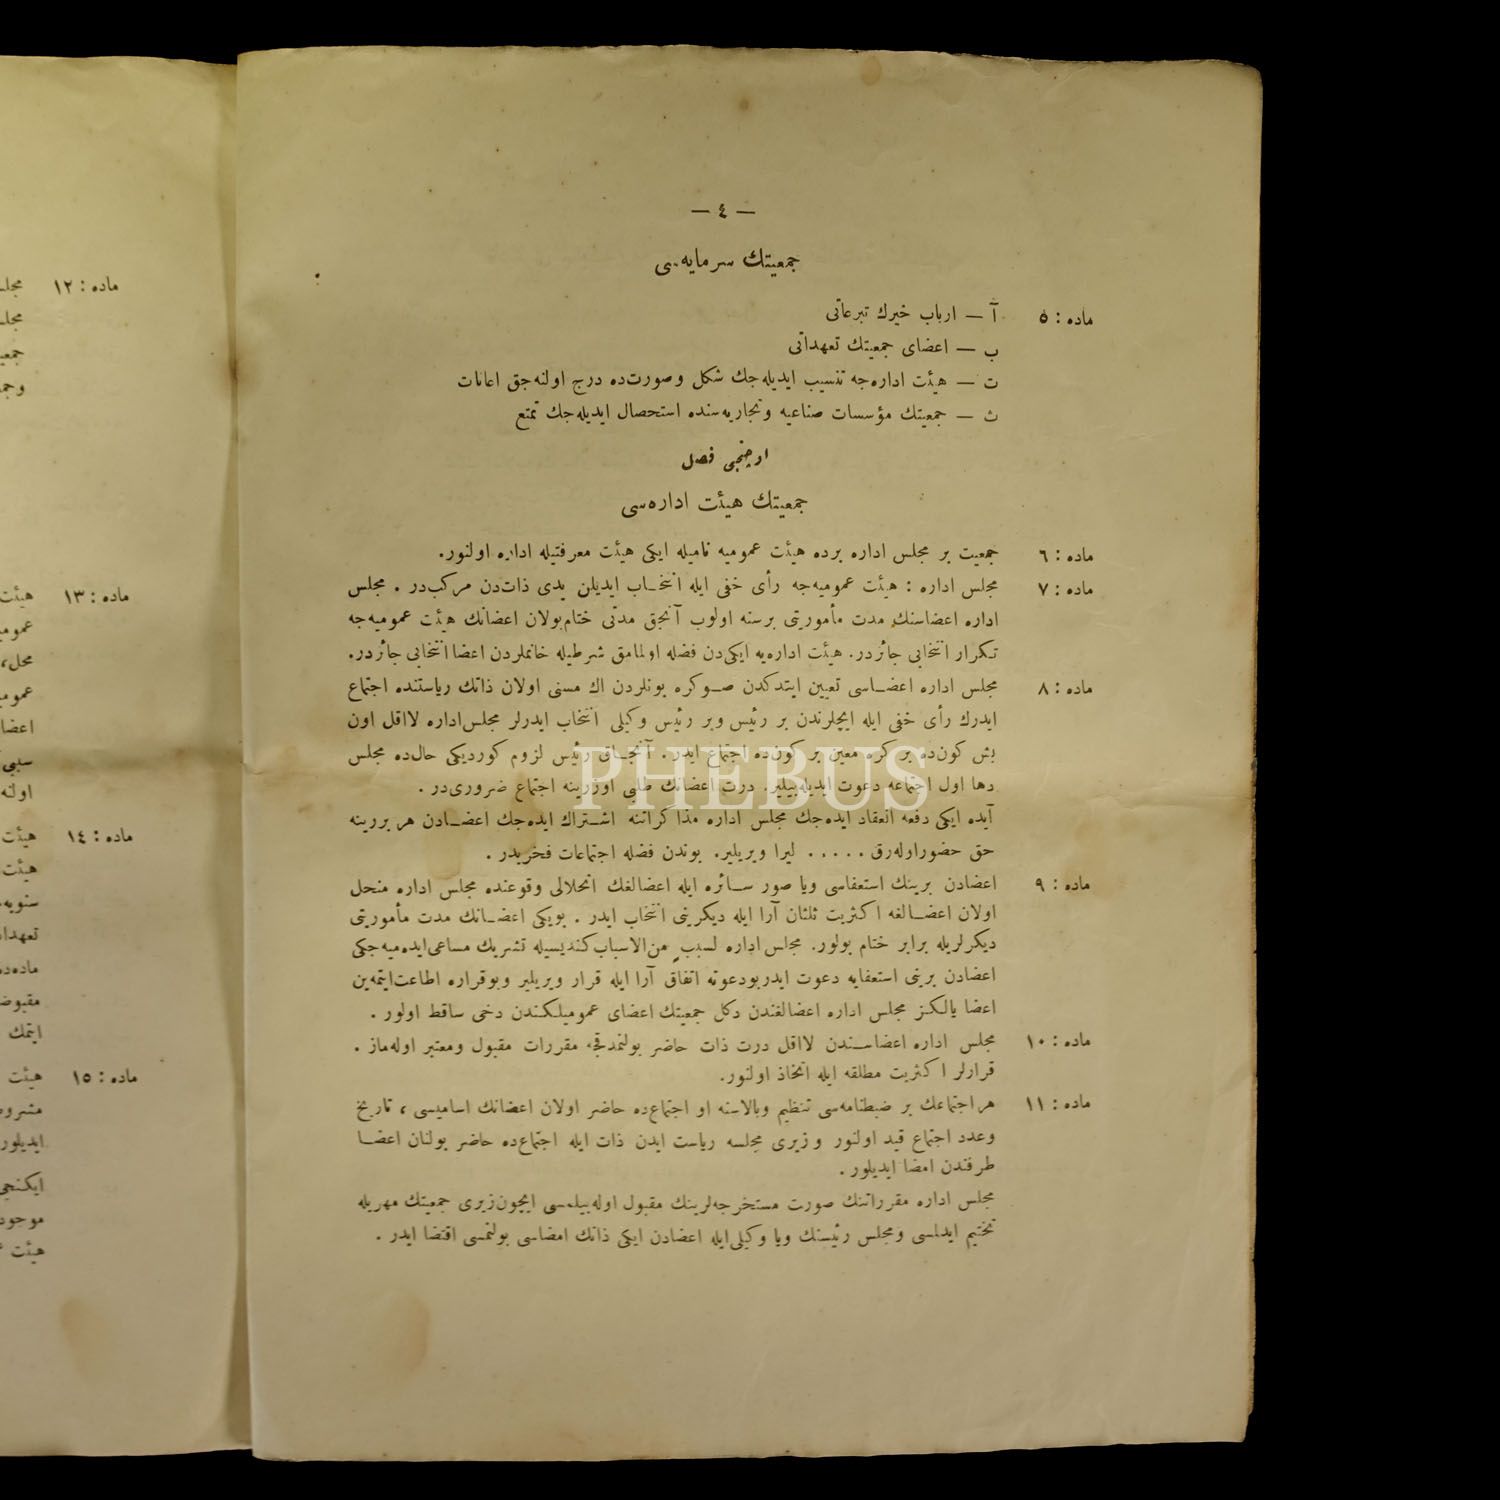 — ٤ —
جمعیتك سرمایه‌سی
ماده : ٥ آ — ارباب خیرك تبرعاتی
ب — اعضای جمعیتك تعهداتی
ت — هیئت اداره‌جه تنسیب ایدیله‌جك شکل وصورت‌ده درج اولنه‌جق اعانات
ث — جمعیتك مؤسسات صناعیه وتجاریه‌سنده استحصال ایدیله‌جك تمتع
اوچنجی فصل
جمعیتك هیئت اداره‌سی
ماده : ٦ جمعیت بر مجلس اداره برده هیئت عمومیه نامیله ایکی هیئت معرفتیله اداره اولنور.
ماده : ٧ مجلس اداره : هیئت عمومیه‌جه رأی خفی ایله انتخـاب ایدیلن یدی ذات‌دن مرکب‌در . مجلس
اداره اعضاسنك مدت مأموریتی برسنه اولوب آنجق مدتی ختام‌بولان اعضانك هیئت عمومیه‌جه
تکرار انتخابی جائزدر. هیئت اداره‌یه ایکی‌دن فضله اولمامق شرطیله خانملردن اعضا انتخابی جائزدر.
ماده : ٨ مجلس اداره اعضـاسی تعیین ایتدکدن صـوکره بونلردن اك مسنی اولان ذاتك ریاستنده اجتماع
ایدرك رأی خفی ایله ایچلرندن بر رئیس وبر رئیس وکیلی انتخاب ایدرلر مجلس‌اداره لااقل اون
بش کون‌ده بر کره معین بر کون‌ده اجتماع ایدر . آنجـاق رئیس لزوم کوردیکی حال‌ده مجلس
دها اول اجتماعه دعوت ایدیله‌بیلیر. درت اعضانك طلبی اوزرینه اجتماع ضروری‌در .
PHEBUS
آیده ایکی دفعه انعقاد ایده‌جك مجلس اداره مذاکراتنه اشـتراك ایده‌جك اعضـادن هر بررینه
حق حضوراوله‌رق ..... لیرا ویریلیر. بوندن فضله اجتماعات فخریدر .
ماده : ٩ اعضادن برینك استعفاسی ویا صور سـائره ایله اعضالغك انحلالی وقوعنده مجلس اداره منحل
اولان اعضـالغه اکثریت ثلثان آرا ایله دیکرینی انتخاب ایدر . بویکی اعضـانك مدت مأموریتی
دیکرلریله برابر ختام بولور. مجلس‌اداره لسبب من‌الاسباب‌کندیسیله تشریك مساعی‌ایده‌میه‌جکی
اعضادن برینی استعفایه دعوت ایدربودعوته اتفاق آرا ایله قرار ویریلیر وبوقراره اطاعت‌ایتمه‌ین
اعضا یالکز مجلس اداره اعضالغندن دکل جمعیتك اعضای عمومیلکندن دخی ساقط اولور .
ماده : ١٠ مجلس اداره اعضاسـندن لااقل درت ذات حاضر بولنمدقجه مقررات مقبول ومعتبر اوله‌ماز .
قرارلر اکثریت مطلقه ایله اتخاذ اولنور.
ماده : ١١ هراجتماعك بر ضبطنامه‌سی تنظیم وبالاسنه او اجتماع‌ده حاضر اولان اعضانك اسامیسی ، تاریخ
وعدد اجتماع قید اولنور وزیری مجلسه ریاست ایدن ذات ایله اجتماع‌ده حاضر بولنان اعضـا
طرفندن امضا ایدیلور .
مجلس اداره مقرراتنك صورت مستخرجه‌لرینك مقبول اوله‌بیلمسی ایچون‌زیری جمعیتك مهریله
تختیم ایدلمسی ومجلس رئیسنك ویا وکیلی‌ایله اعضادن ایکی ذاتك امضاسی بولنمسی اقتضا ایدر .
ماده : ١٢
ماده : ١٣ هیئت
محل،
ماده : ١٤ هیئت
هیئت
ایتمك
ماده : ١٥ هیئت
ایدیلور
ایکنجی
موجود
هیئت